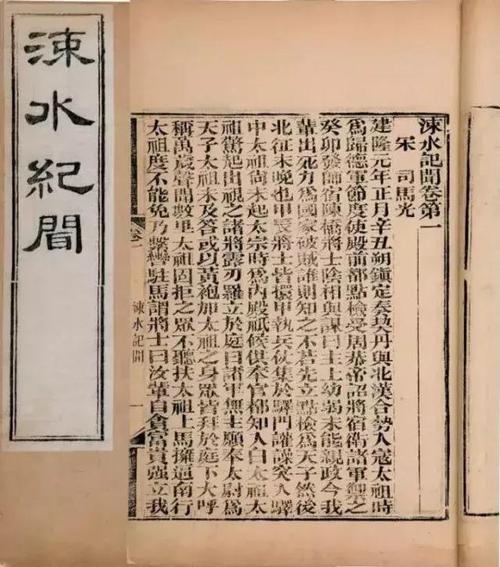 涑水紀聞
涑水記聞卷第一
宋 司馬光
建隆元年正月辛丑朔鎭定奏契丹與北漢合勢入寇太祖時
爲歸德軍節度使殿前都點檢受周恭帝詔將宿衛諸軍禦之
癸卯發師宿陳橋將士陰相與謀曰主上幼弱未能親政今我
輩出死力爲國家破賊誰則知之不若先立點檢爲天子然後
北征未晚也甲辰將士皆擐甲執兵仗集於驛門讙譟突入驛
中太祖尚未起太宗時爲內殿祗候供奉官都知入白太祖太
祖驚起出視之諸將露刃羅立於庭曰諸軍無主願奉太尉爲
天子太祖未及答或以黃袍加太祖之身眾皆拜於庭下大呼
稱萬歲聲聞數里太祖固拒之眾不聽扶太祖上馬擁逼南行
太祖度不能免乃繫轡駐馬謂將士曰汝輩自貪富貴強立我
卷一 涑水記聞 一